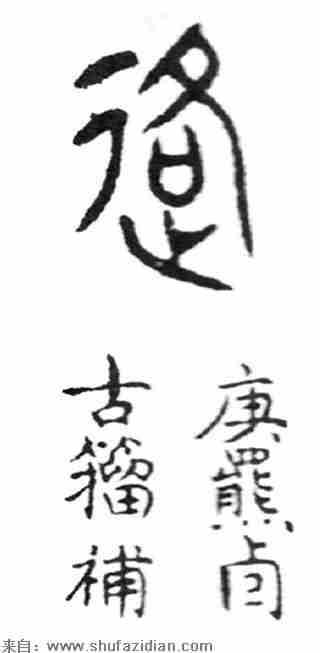 庚羆卣
古籀補
来自：www.shufazidian.com